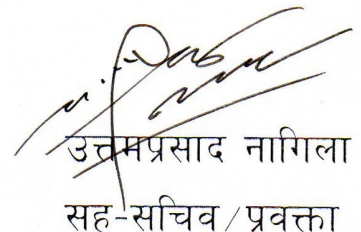 उत्तमप्रसाद नागिला
सह-सचिव/प्रवक्ता